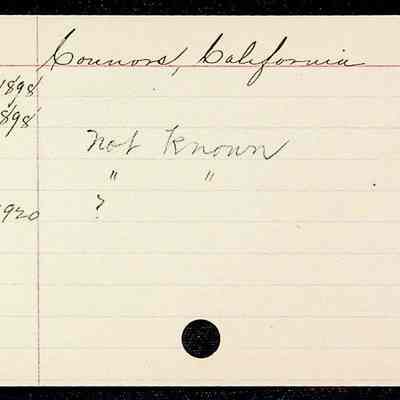 Connors, California
1898
1898
Not Known
" "
1920 ?